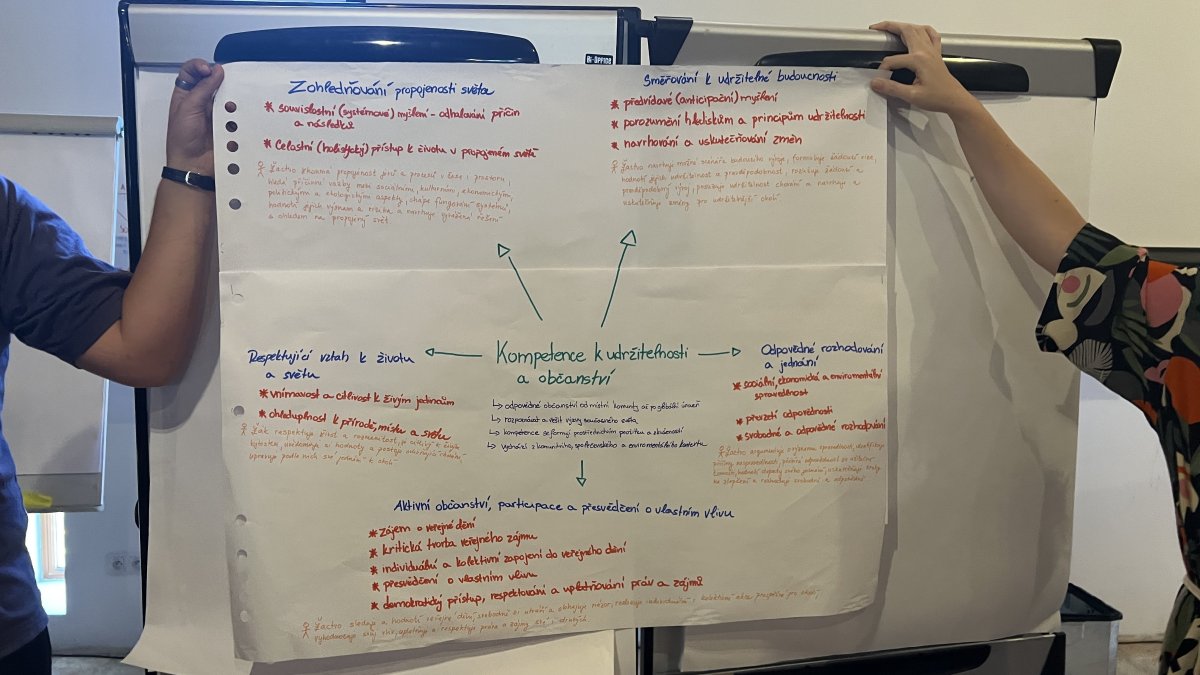 Bi-OFFICE
Zohledňování propojenosti světa
* souvislostní (systémové) myšlení - odhalování příčin
a následků
* Celostní (holistický) přístup k životu v propojeném světě
Žactvo zkoumá propojenost jevů a procesů v čase i prostoru,
hledá příčinné vazby mezi sociálními, kulturními, ekonomickými,
politickými a ekologickými aspekty, chápe fungování systémů,
hodnotí jejich význam a rizika a navrhuje vytvážení řešení
s ohledem na propojený svět
Směřování k udržitelné budoucnosti
* předvídavé (anticipační) myšlení
* porozumění hlediskům a principům udržitelnosti
* navrhování a uskutečňování změn
Žactvo navrhuje možné scénáře budoucího vývoje, formuluje žádoucí vize,
hodnotí jejich udržitelnost a pravděpodobnost, rozlišuje žádoucí a
pravděpodobný vývoj, posuzuje udržitelnost chování a navrhuje a
uskutečňuje změny pro udržitelnější okolí
Respektující vztah k životu
a světu
* vnímavost a citlivost k živým jedincům
* ohleduplnost k přírodě, místu a světu
Žák respektuje život a rozmanitost, je citlivý k živým
bytostem, uvědomuje si hodnoty a postoje
upravuje podle nich své jednání k okolí
Kompetence k udržitelnosti
a občanství
↳ odpovědné občanství od místní komunity až po globální úroveň
↳ rozpoznávat a řešit výzvy současného světa
↳ kompetence se formují prostřednictvím prožitku a zkušeností
↳ vychází z komunitního, společenského a enviromentálního kontextu
Odpovědné rozhodování
a jednání
* sociální, ekonomická a enviromentální
spravedlnost
* převzetí odpovědnosti
* svobodné a odpovědné rozhodování
Žactvo argumentuje o významu spravedlnosti, identifikuje
příčiny nespravedlnosti, přebírá odpovědnost za
hodnotí dopady svého jednání, uskutečňuje kroky
ke zlepšení a rozhoduje svobodně a odpovědně
Aktivní občanství, participace a přesvědčení o vlastním vlivu
* zájem o veřejné dění
* kritická tvorba veřejného zájmu
* individuální a kolektivní zapojení do veřejného dění
* přesvědčení o vlastním vlivu
* demokratický přístup, respektování a uplatňování práv a zájmů
Žactvo sleduje a hodnotí veřejné dění, svobodně si utváří a obhajuje názor, realizuje individuální i kolektivní akce prospěšné pro okolí,
vyhodnocuje svůj vliv, uplatňuje a respektuje práva a zájmy své i druhých.